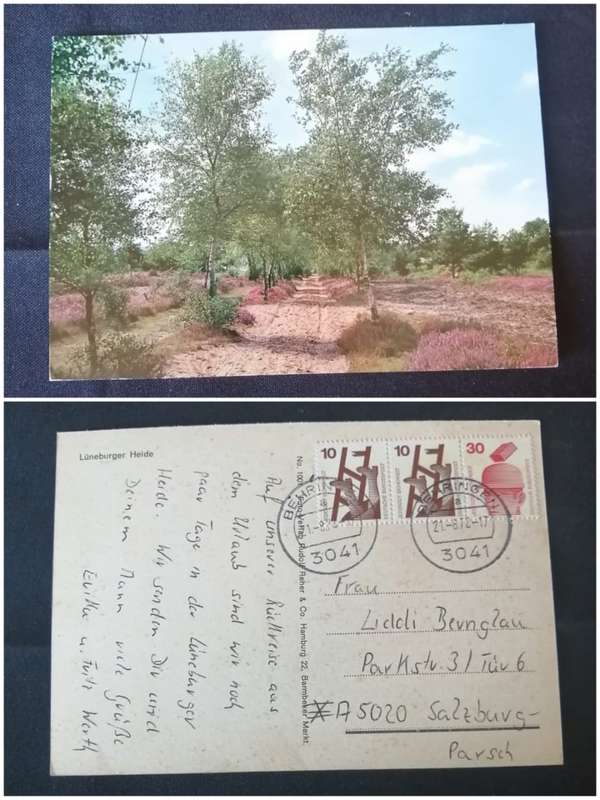 Lüneburger Heide
Auf unserer Rückreise aus
dem Urlaub sind wir noch
paar Tage in der Lüneburger
Heide. Wir senden Dir und
Deinem Mann viele Grüße
Fritz Werth
Rudolf Reher & Co. Hamburg 22, Barmbeker Markt
10
10
30
BEHRINGEN
3041
BEHRINGEN
21.-8.72-17
3041
Frau
Liddi Bernglau
Parkstr. 31 Tür 6
A 5020 Salzburg-
Parsch